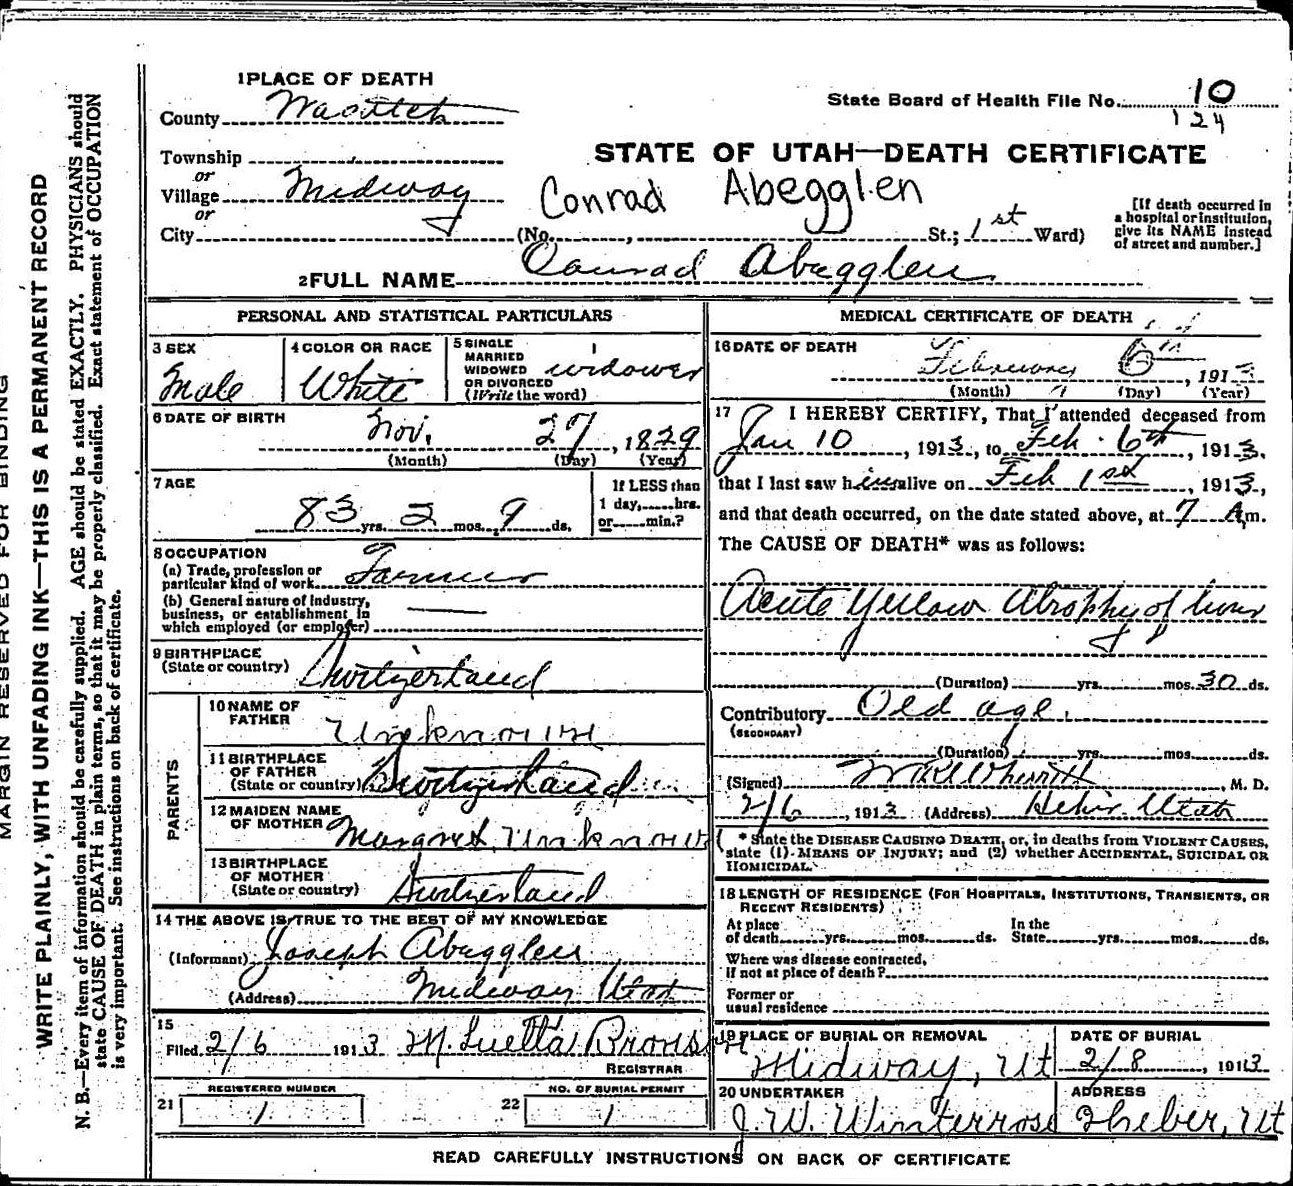 MARGIN RESERVED FOR BINDING
WRITE PLAINLY, WITH UNFADING INK—THIS IS A PERMANENT RECORD
N. B.—Every item of information should be carefully supplied. AGE should be stated EXACTLY. PHYSICIANS should
state CAUSE OF DEATH in plain terms, so that it may be properly classified. Exact statement of OCCUPATION
is very important. See instructions on back of certificate.
1 PLACE OF DEATH
County Wasatch
Township
or
Village Midway
or
City
State Board of Health File No. 10
124
STATE OF UTAH—DEATH CERTIFICATE
Conrad Abegglen
(No. , St.; 1st Ward)
[If death occurred in
a hospital or institution,
give its NAME instead
of street and number.]
2 FULL NAME Conrad Abegglen
PERSONAL AND STATISTICAL PARTICULARS
3 SEX
Male
4 COLOR OR RACE
White
5 SINGLE
MARRIED
WIDOWED
OR DIVORCED
(Write the word)
widower
6 DATE OF BIRTH
Nov. 27, 1829
(Month) (Day) (Year)
7 AGE
83 yrs. 2 mos. 9 ds.
If LESS than
1 day, hrs.
or min.?
8 OCCUPATION
(a) Trade, profession or
particular kind of work Farmer
(b) General nature of industry,
business, or establishment in
which employed (or employer)
9 BIRTHPLACE
(State or country) Switzerland
PARENTS
10 NAME OF
FATHER
Unknown
11 BIRTHPLACE
OF FATHER
(State or country) Switzerland
12 MAIDEN NAME
OF MOTHER Margret Unknown
13 BIRTHPLACE
OF MOTHER
(State or country) Switzerland
14 THE ABOVE IS TRUE TO THE BEST OF MY KNOWLEDGE
(Informant) Joseph Abegglen
(Address) Midway Utah
15
Filed 2/6 1913 M. Luetta Bronson
REGISTRAR
REGISTERED NUMBER
21 1
NO. OF BURIAL PERMIT
22 1
MEDICAL CERTIFICATE OF DEATH
16 DATE OF DEATH
February 6th, 1913
(Month) (Day) (Year)
17 I HEREBY CERTIFY, That I attended deceased from
Jan 10, 1913, to Feb. 6th, 1913,
that I last saw him alive on Feb 1st, 1913,
and that death occurred, on the date stated above, at 7 A m.
The CAUSE OF DEATH* was as follows:
Acute Yellow Atrophy of liver
(Duration) yrs. mos. 30 ds.
Contributory Old age.
(SECONDARY)
(Duration) yrs. mos. ds.
(Signed) , M. D.
2/6, 1913 (Address) Heber Utah
* State the DISEASE CAUSING DEATH, or, in deaths from VIOLENT CAUSES,
state (1) MEANS OF INJURY; and (2) whether ACCIDENTAL, SUICIDAL OR
HOMICIDAL.
18 LENGTH OF RESIDENCE (FOR HOSPITALS, INSTITUTIONS, TRANSIENTS, OR
RECENT RESIDENTS)
At place
of death yrs. mos. ds.
In the
State yrs. mos. ds.
Where was disease contracted,
if not at place of death?
Former or
usual residence
19 PLACE OF BURIAL OR REMOVAL
Midway, Ut
DATE OF BURIAL
2/8, 1913
20 UNDERTAKER
J. W. Winterrose
ADDRESS
Heber, Ut
READ CAREFULLY INSTRUCTIONS ON BACK OF CERTIFICATE